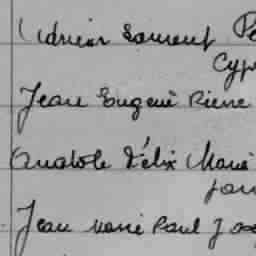 Adrien Laurent Pe
Cyp
Jean Eugene Pierre
Anatole Félix Marie
Jean Marie Paul Jos